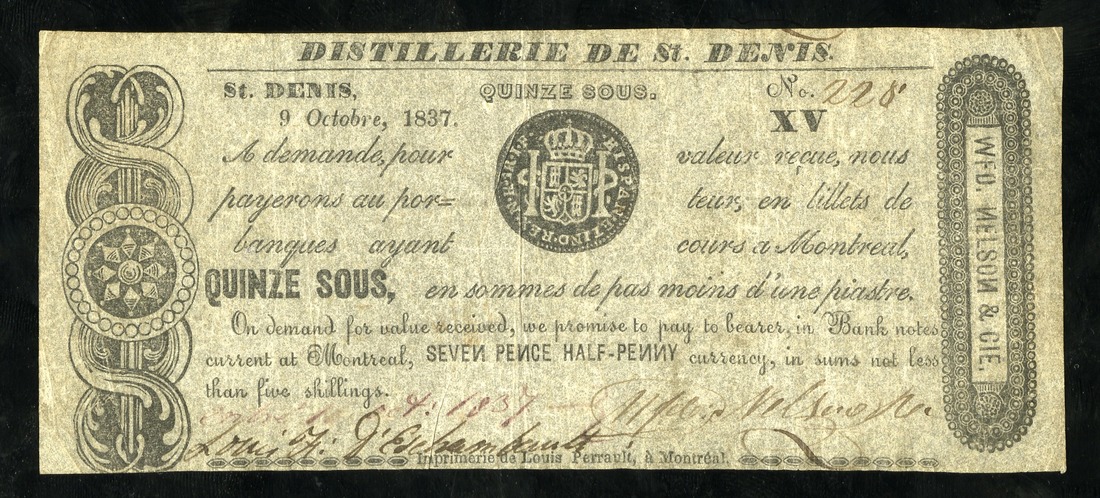 DISTILLERIE DE St. DENIS.
St. DENIS, QUINZE SOUS. No. 228
9 Octobre, 1837. XV
A demande, pour valeur reçue, nous
payerons au por= teur, en billets de
banques ayant cours a Montreal,
QUINZE SOUS, en sommes de pas moins d'une piastre.
On demand for value received, we promise to pay to bearer, in Bank notes
current at Montreal, SEVEN PENCE HALF-PENNY currency, in sums not less
than five shillings.
1837 Nelson
Louis F. D'Eschambault
Imprimerie de Louis Perrault, à Montréal.
WFD. NELSON & CIE.
HISPAN ET IND RE